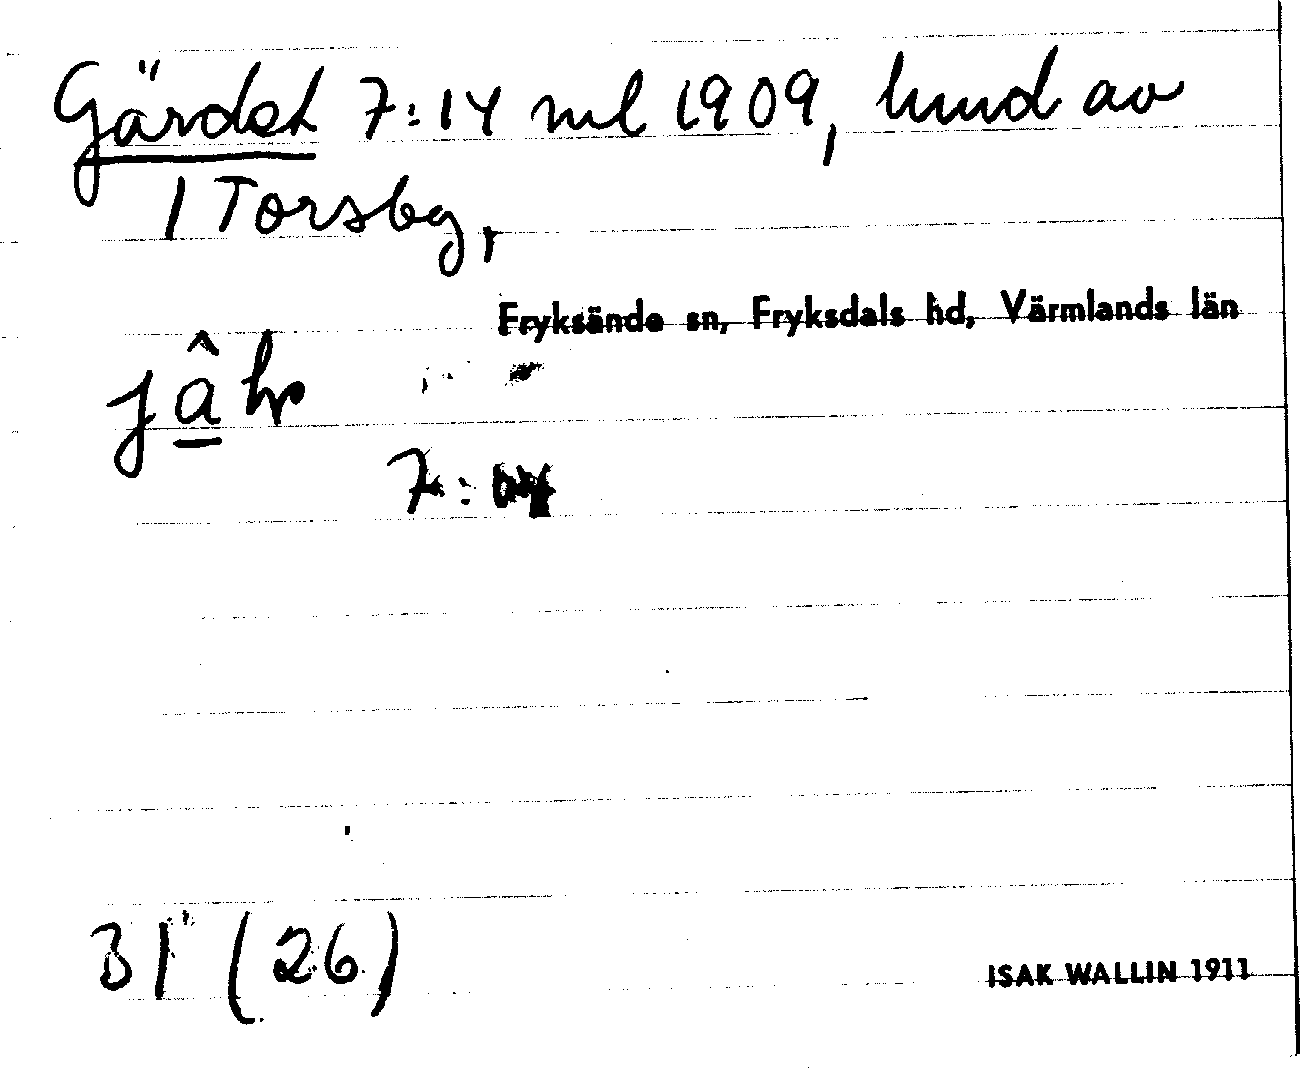 Gärdet 7:14 ml 1909, hmd av
1 Torsby,
Fryksände sn, Fryksdals hd, Värmlands län
7:
31 (26)
ISAK WALLIN 1911